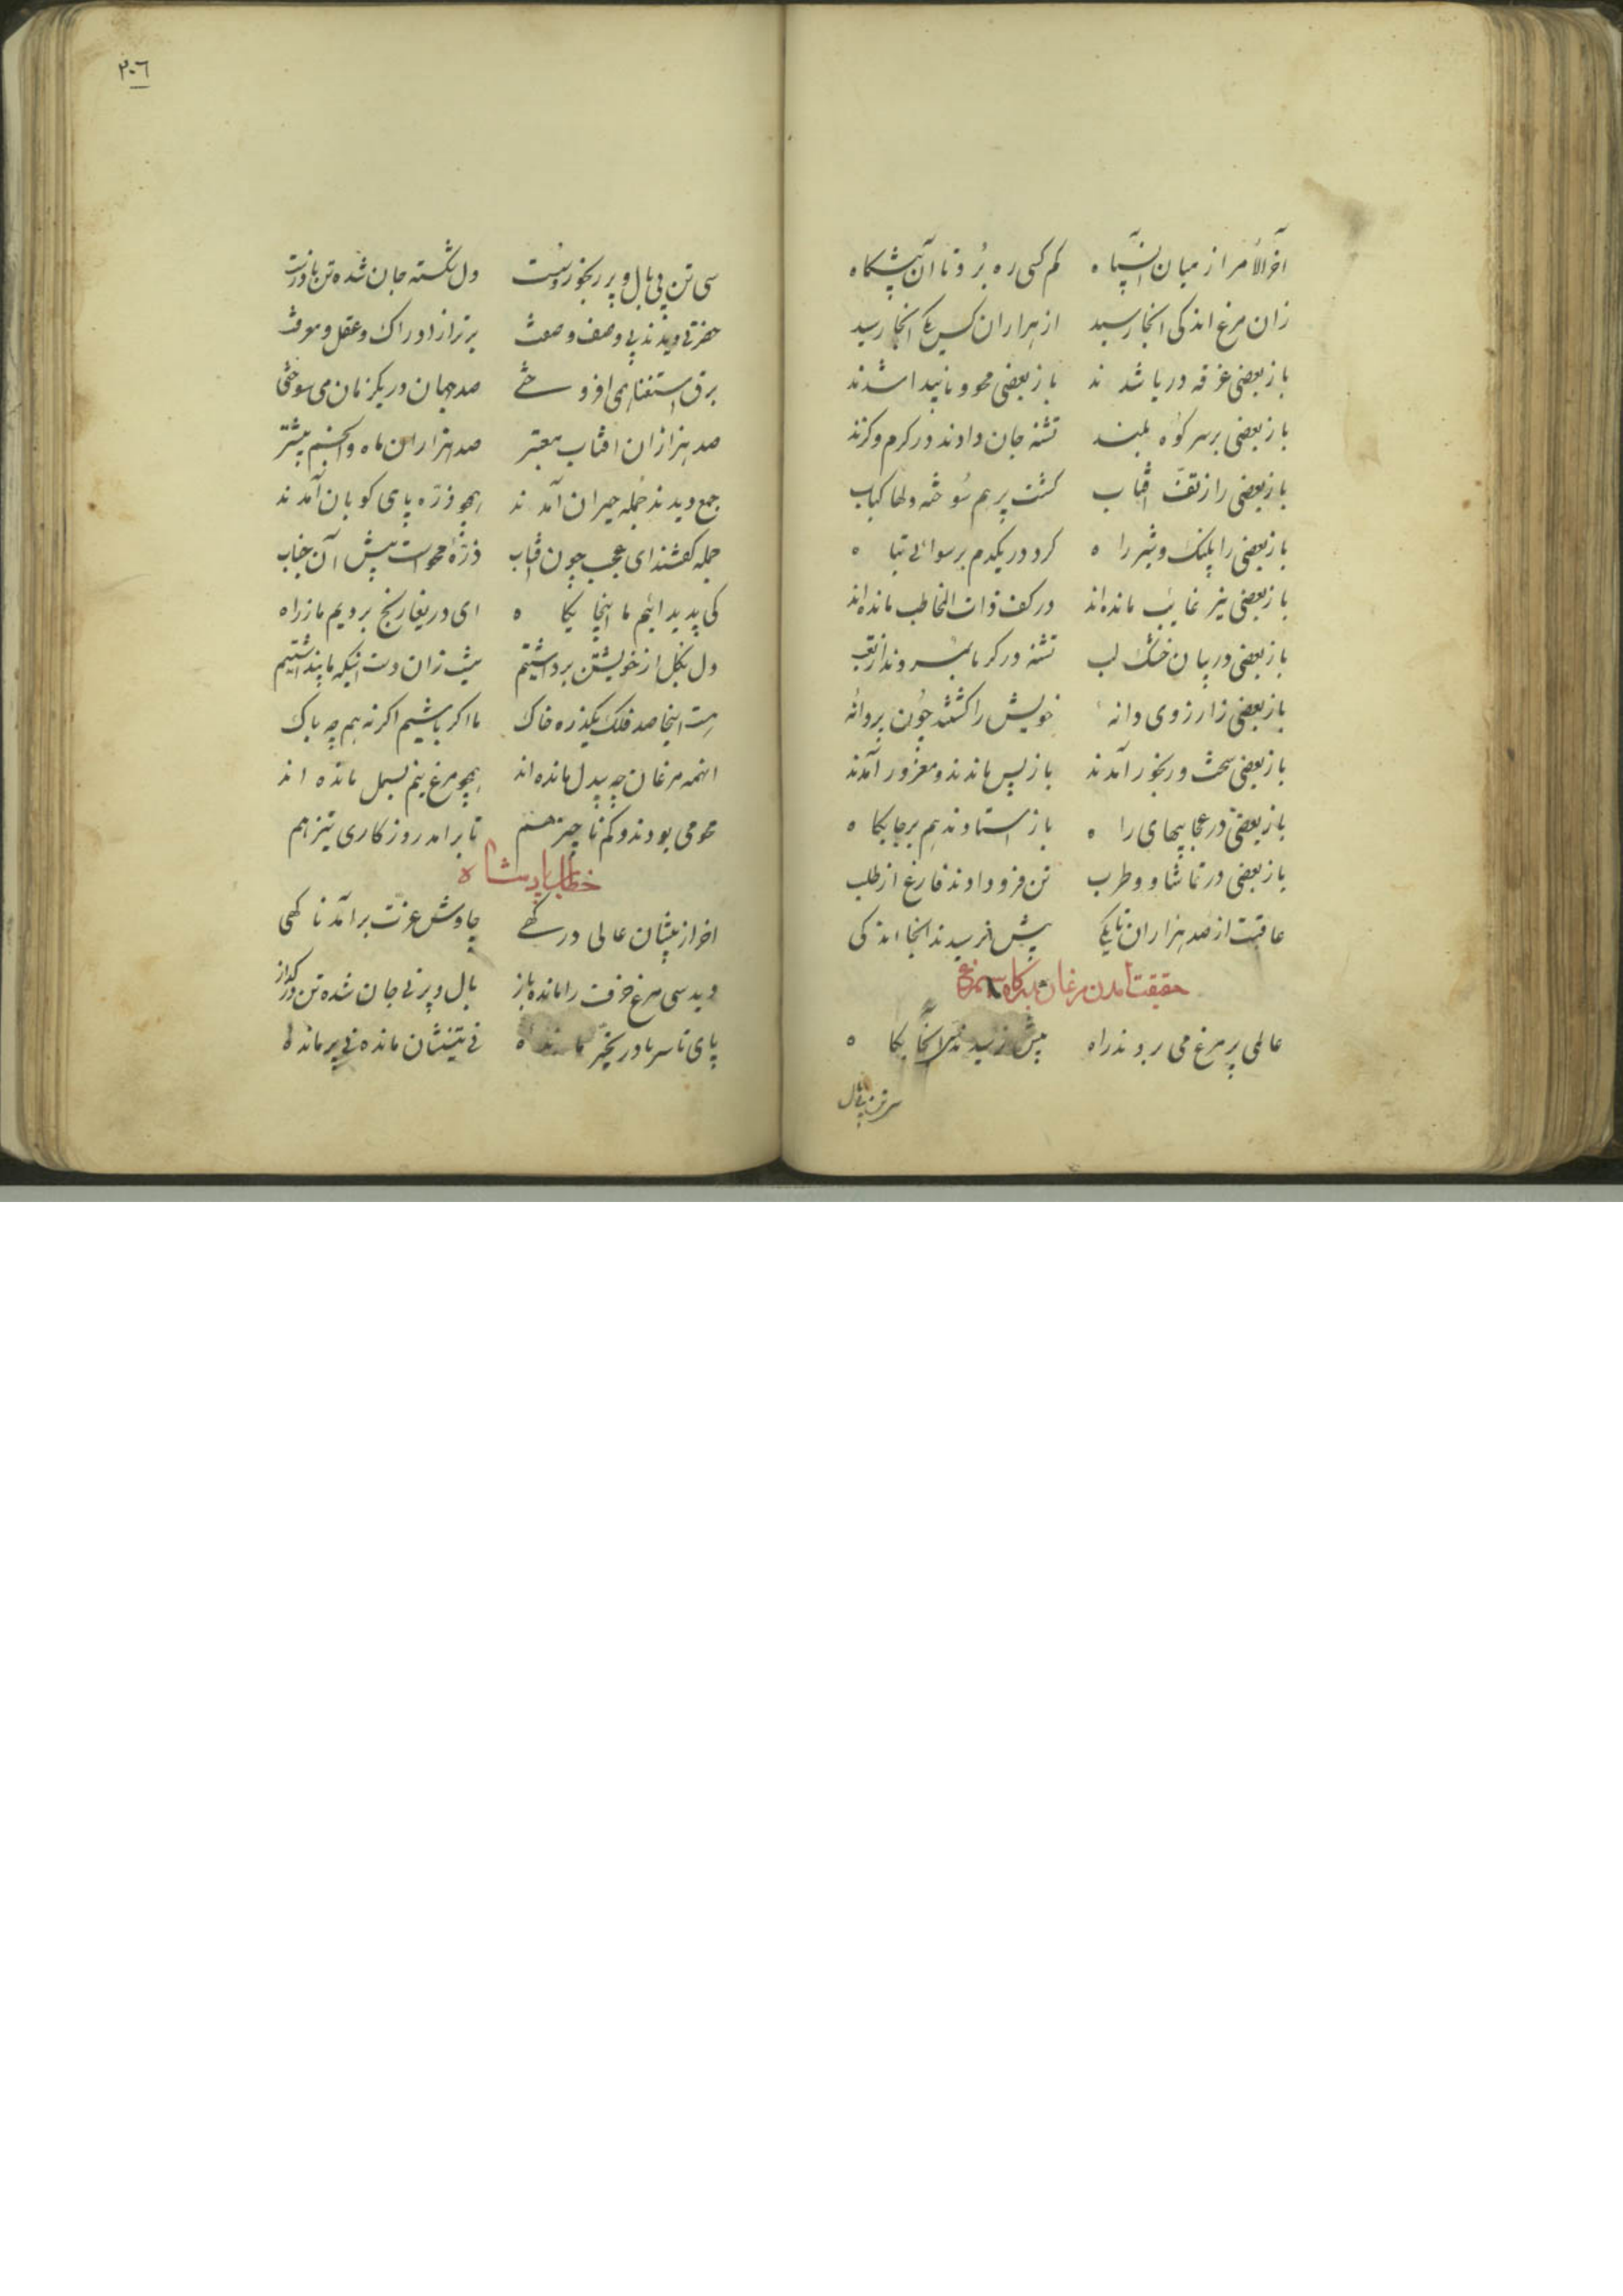 آخر الامر از میان آن سپاه کم کسی ره برد تا آن پیشکاه
زان مرغ اندکی آنجا رسید از هزاران کس یکی آنجا رسید
باز بعضی غرقه دریا شدند باز بعضی محو و ناپیدا شدند
باز بعضی بر سر کوه بلند تشنه جان دادند در کرم و کزند
باز بعضی را ز تف آفتاب کشت پرهم سوخته دلها کباب
باز بعضی را پلنک و شیر راه کرد در یکدم برسوائی تباه
باز بعضی نیز غایب مانده‌اند در کف ذات المخالب مانده‌اند
باز بعضی در بیابان خشک لب تشنه در کرما بمردند از تعب
باز بعضی ز آرزوی دانه خویش را کشتند چون پروانه
باز بعضی سخت و رنجور آمدند باز پس ماندند و مغرور آمدند
باز بعضی در عجایبهای راه باز استادند هم بر جایکاه
باز بعضی در تماشا و طرب تن فرو دادند فارغ از طلب
عاقبت از صد هزاران تا یکی بیش نرسیدند آنجا اندکی
حقیقت آمدن مرغان بدرکاه سیمرغ
عالمی پر مرغ می بردند راه بیش نرسیدند سی آنجایکاه
سی تن بی بال
٢٠٦
سی تن بی بال و پر رنجور و سست دل شکسته جان شده تن نادرست
حضرتی دیدند بی وصف و صفت برتر از ادراک و عقل و معرفت
برق استغنا همی افروختی صد جهان در یکزمان می سوختی
صد هزاران افتاب معتبر صد هزاران ماه و انجم بیشتر
جمع دیدند جمله حیران آمدند همچو ذره پای کوبان آمدند
جمله کفتند ای عجب چون افتاب ذرّه محوست پیش آن جناب
کی پدید ائیم ما اینجایکاه ای دریغا رنج بردیم ما ز راه
دل بکل از خویشتن برداشتیم نیست زان دست اینکه ما پنداشتیم
هست اینجا صد فلک یکذره خاک ما اکر باشیم اکر نه هم چه باک
انهمه مرغان چه بیدل مانده اند همچو مرغ نیم بسمل مانده اند
محو می بودند و کم ناچیز هم تا برامد روزکاری نیز هم
خطاب پادشاه
اخر از پیشان عالی درکهی چاوش عزت برآمد ناکهی
دید سی مرغ خرف را مانده باز بال و پر نی جان شده تن در کداز
پای تا سر در تحیّر مانده نی تنشان مانده نی پر مانده